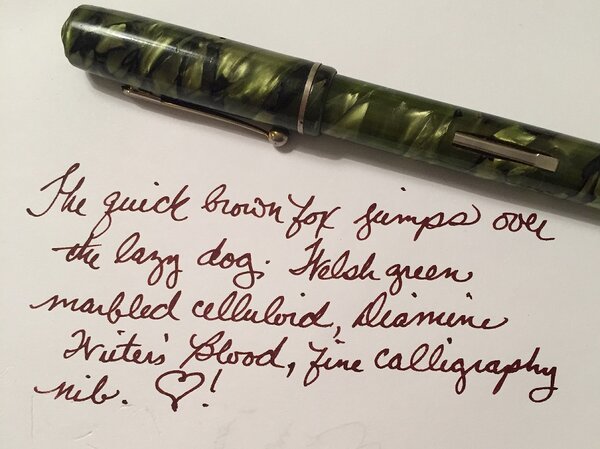 The quick brown fox jumps over
the lazy dog. Welsh green
marbled celluloid, Diamine
Writer's Blood, fine calligraphy
nib. ♡!